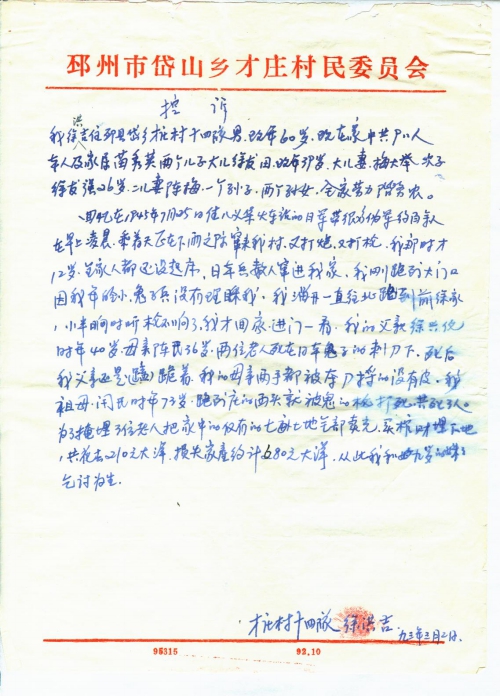 邳州市岱山乡才庄村民委员会
控 诉
我徐洪吉住邳县岱乡才庄村十四队,男,现年60岁,现在家中共9口人
本人及家属 秀英两个儿子大儿徐发田,现年39岁,大儿妻,梅大 次子
徐友强26岁,二儿妻陈梅,一个孙子,两个孙女,全家劳力 务农。
回忆在1945年7月25日 八义集火车站的日军带领 伪军约百余人
在早上凌晨,乘着天正在下雨之际窜来我村,又打炮,又打枪,我那时才
12岁,全家人都还没起床,日军兵数人窜进我家,我刚跑到大门口
因我年幼小,鬼子兵没有理睬我,我 开一直往北跑到前徐家
,小半晌时听枪不响了,我才回家,进门一看,我的父亲徐兴
时年40岁,母亲陈氏36岁,两位老人死在日军鬼子的刺刀下,死后
我父亲还是 跪着,我的母亲两手都被夺刀 的没有皮,我
祖母,闫氏时年73岁,跑到庄的西头就被鬼 枪打死,共死3人。
为了掩埋3位老人把家中的仅有的七亩土地全部卖光,买棺材埋下地
,共花去210元大洋,损失家产约计680元大洋,从此我和 九岁的妹
乞讨为生。
才庄村十四队 徐洪吉 九三年三月2日.
95315 92.10